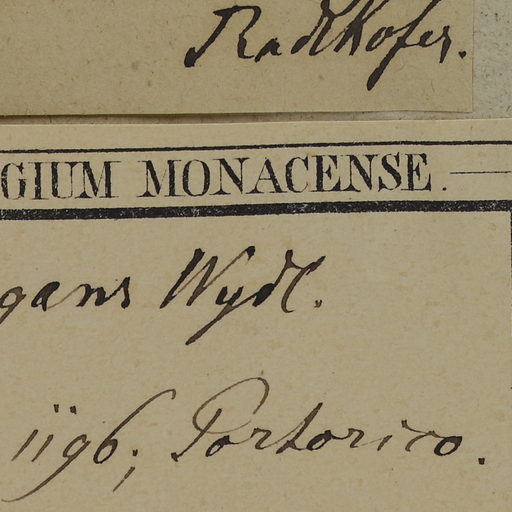 Radlkofer.
GIUM MONACENSE.
gans Wydl.
1196; Portorico.